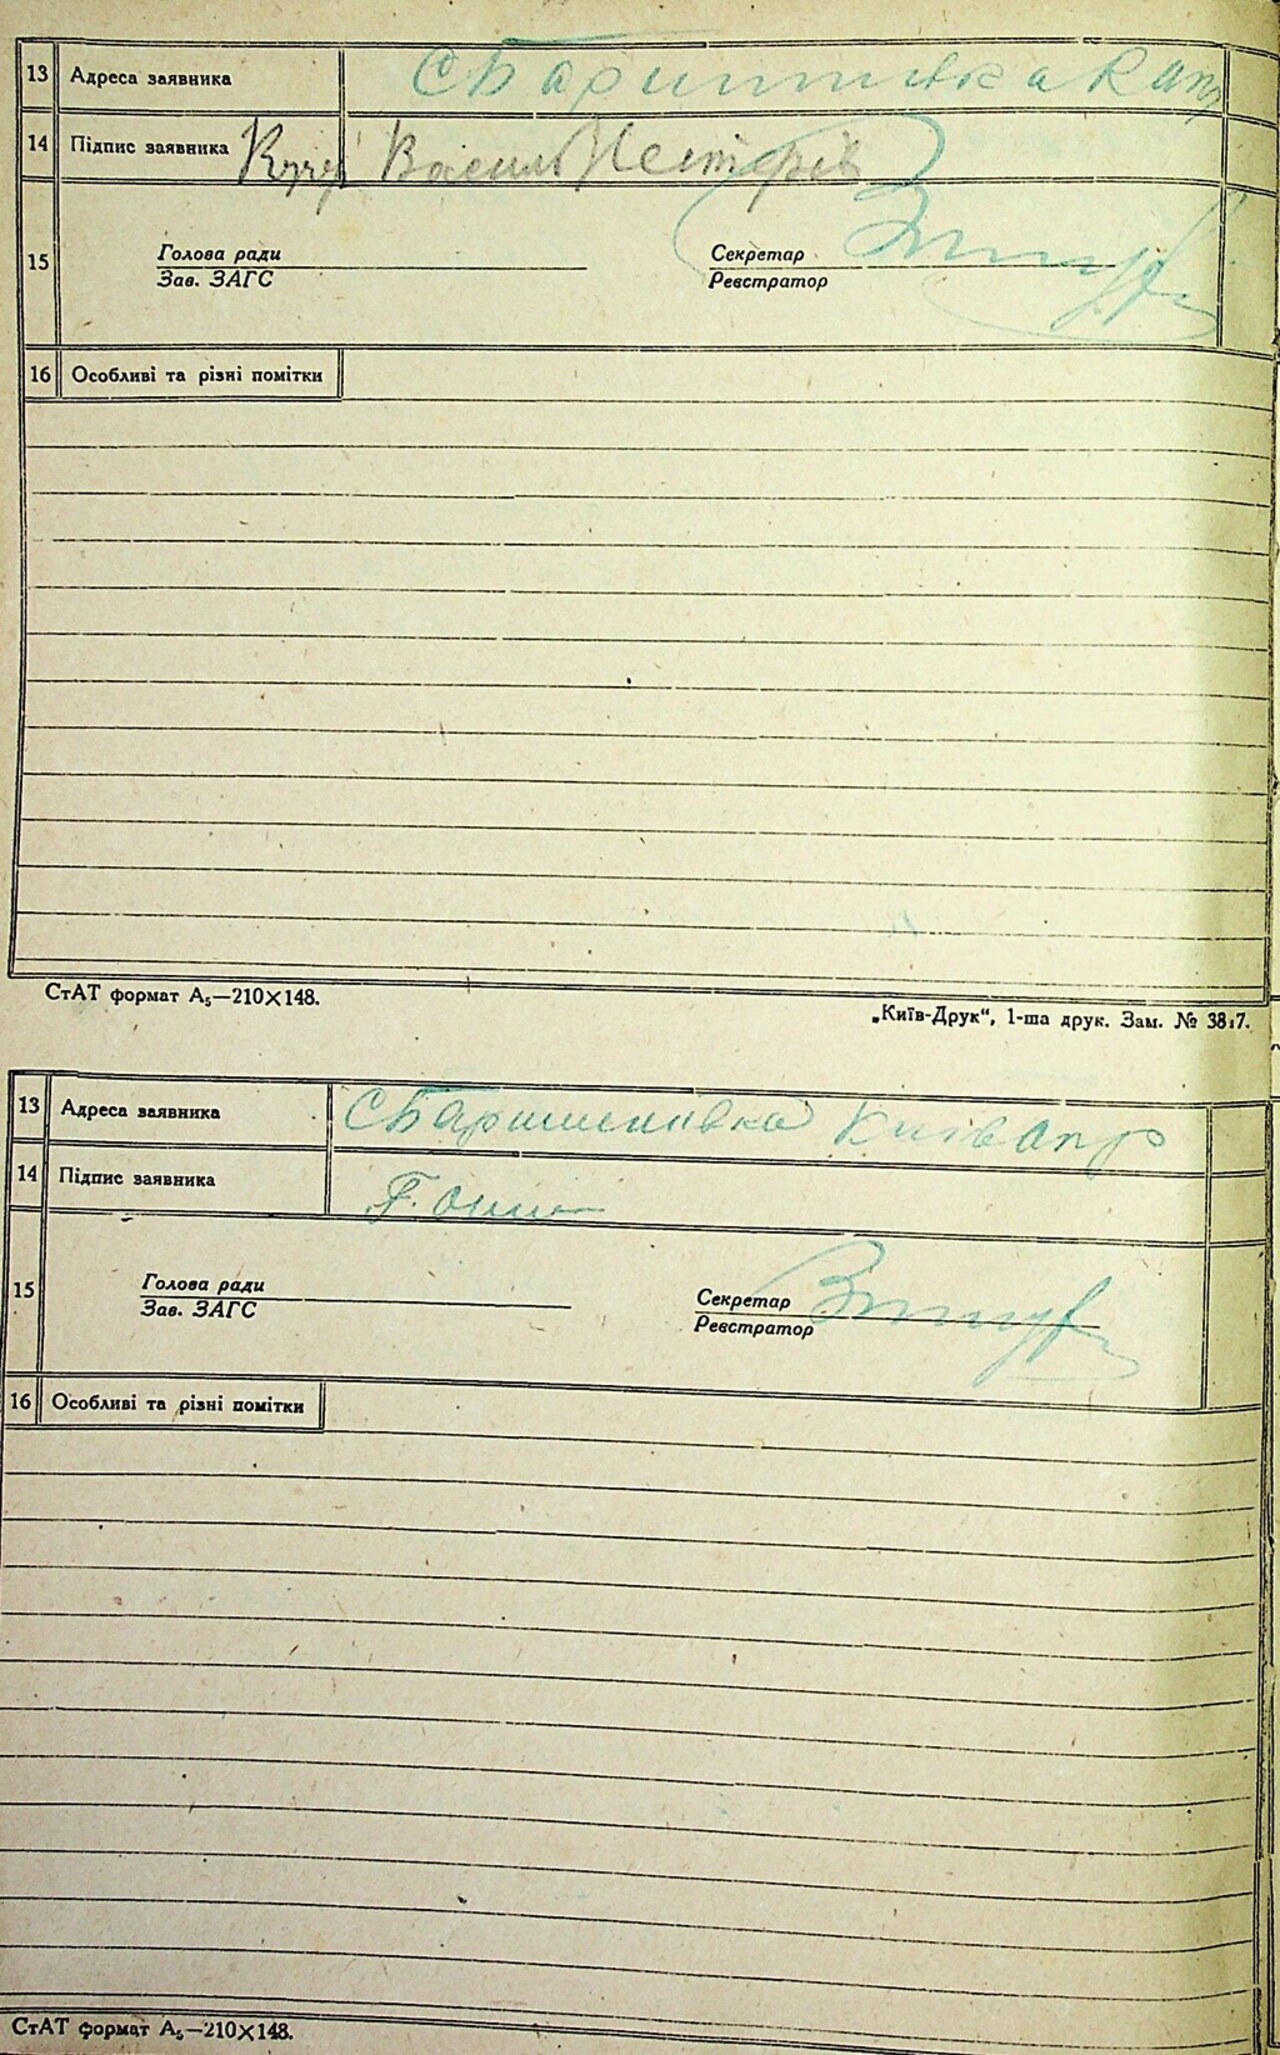 13 Адреса заявника с Баришівка К
14 Підпис заявника Кучер Василь Несторів
15 Голова ради Секретар
Зав. ЗАГС Реєстратор
16 Особливі та різні помітки
СтАТ формат А₅—210×148.
„Київ-Друк“, 1-ша друк. Зам. №
13 Адреса заявника с Баришівка Київ
14 Підпис заявника
15 Голова ради Секретар
Зав. ЗАГС Реєстратор
16 Особливі та різні помітки
СтАТ формат А₅—210×148.